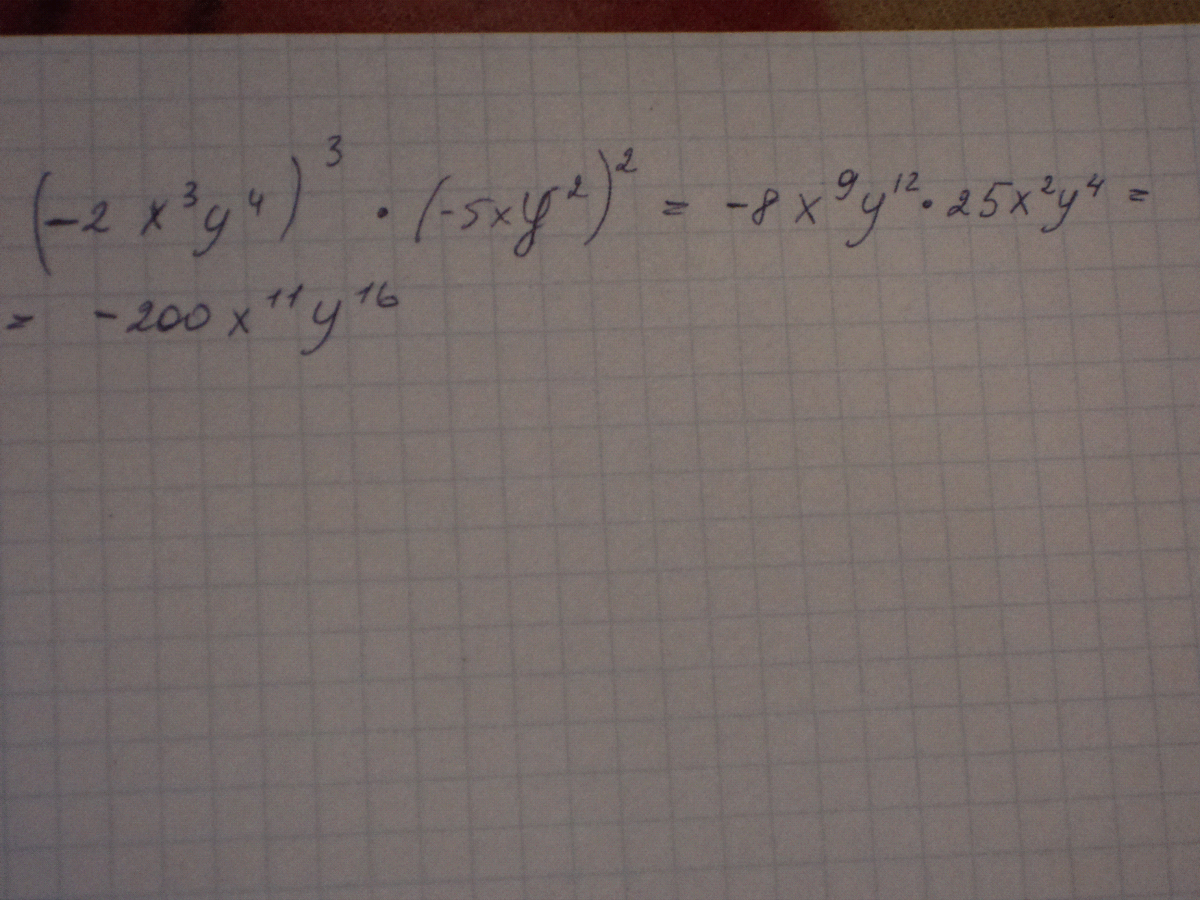 (-2 x³y⁴)³ · (-5xy²)² = -8x⁹y¹²·25x²y⁴ =
= -200x¹¹y¹⁶